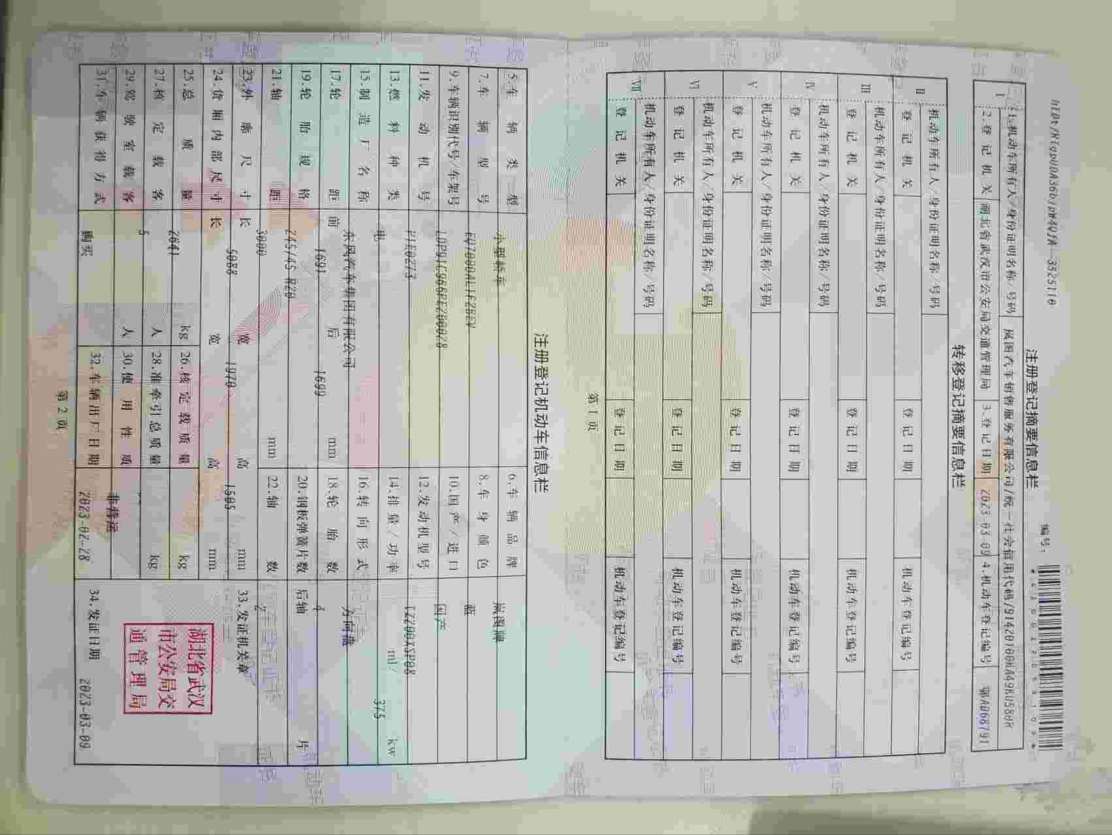 注册登记摘要信息栏
编号:
1.机动车所有人/身份证明名称/号码 岚图汽车销售服务有限公司/统一社会信用代码/91420100MA49KU580R
2.登记机关 湖北省武汉市公安局交通管理局 3.登记日期 2023-03-09 4.机动车登记编号 鄂AD68791
转移登记摘要信息栏
Ⅱ 机动车所有人/身份证明名称/号码
登记机关 登记日期 机动车登记编号
Ⅲ 机动车所有人/身份证明名称/号码
登记机关 登记日期 机动车登记编号
Ⅳ 机动车所有人/身份证明名称/号码
登记机关 登记日期 机动车登记编号
Ⅴ 机动车所有人/身份证明名称/号码
登记机关 登记日期 机动车登记编号
Ⅵ 机动车所有人/身份证明名称/号码
登记机关 登记日期 机动车登记编号
Ⅶ 机动车所有人/身份证明名称/号码
登记机关 登记日期 机动车登记编号
第1页
注册登记机动车信息栏
5.车辆类型 小型轿车 6.车辆品牌 岚图牌
7.车辆型号 8.车身颜色 蓝
9.车辆识别代号/车架号 10.国产/进口 国产
11.发动机号 12.发动机型号 TZ200XSP08
13.燃料种类 电 14.排量/功率 ml/ 375 kw
15.制造厂名称 东风汽车集团有限公司 16.转向形式 方向盘
17.轮距 前 1691 后 1699 mm 18.轮胎数 4
19.轮胎规格 245/45 R20 20.钢板弹簧片数 后轴 片
21.轴距 3000 mm 22.轴数 2
23.外廓尺寸 长 5088 宽 1970 高 1505 mm
33.发证机关章
24.货厢内部尺寸 长 宽 高 mm
25.总质量 2641 kg 26.核定载质量 kg
27.核定载客 5 人 28.准牵引总质量 kg
29.驾驶室载客 人 30.使用性质 非营运
31.车辆获得方式 购买 32.车辆出厂日期 2023-02-28 34.发证日期 2023-03-09
湖北省武汉
市公安局交
通管理局
第2页